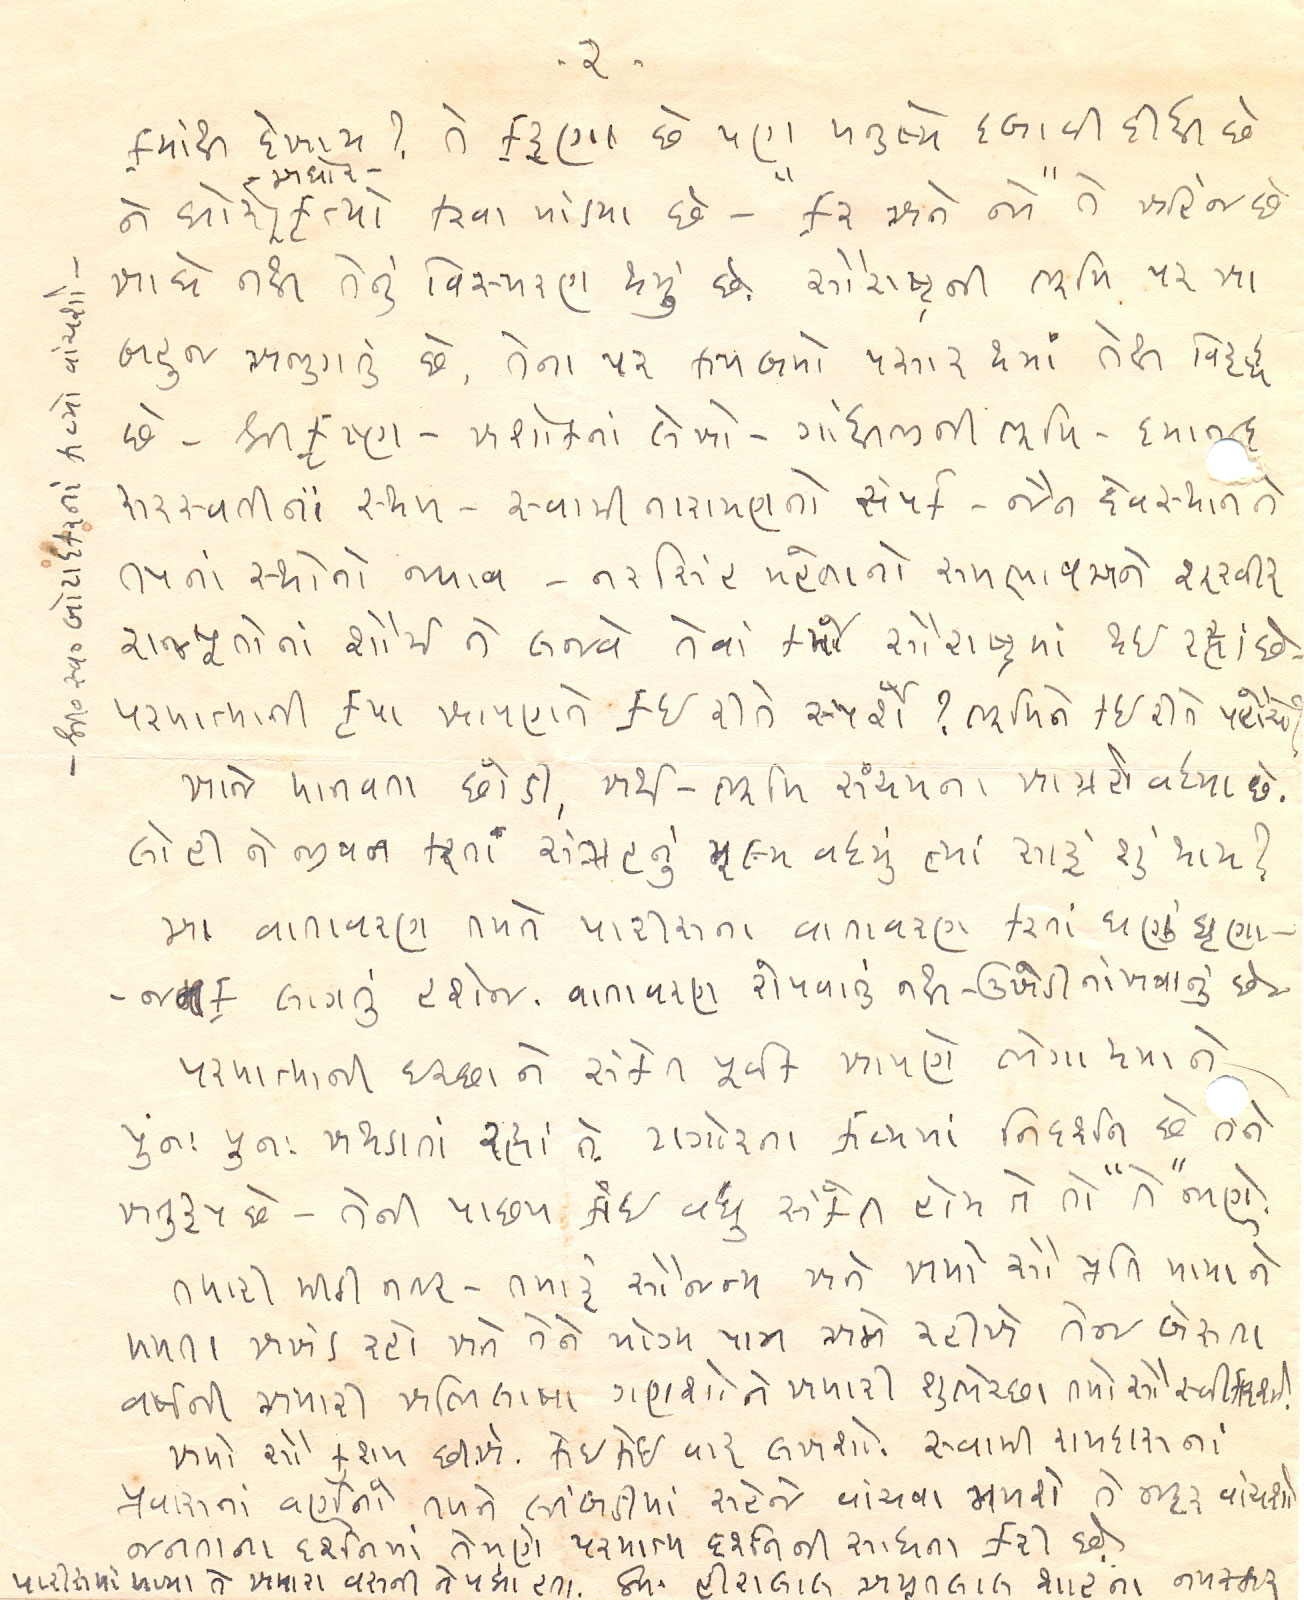 -૨-
ક્યાંથી દેખાય? તે કરૂણા છે પણ મનુષ્યે દબાવી દીધી છે
-અઘોર-
ને ઘોર કૃત્યો કરવા માંડ્યા છે – "કર અને જો" તે અહિંજ છે
આઘે નથી તેનું વિસ્મરણ થયું છે. સૌરાષ્ટ્રની ભૂમિ પર આ
બહુજ અજુગતું છે, તેના પર પસાર થયાં તેથી વિરૂદ્ધ
છે – શ્રી કૃષ્ણ – અશોકનાં લેખો – ગાંધીજીની ભૂમિ – દયાનંદ
સરસ્વતીનાં સ્થળ – સ્વામી નારાયણનો સંપર્ક – જૈન દેવસ્થાન ને
તપનાં સ્થળોનો જમાવ – નરસિંહ મહેતાનો રામભાવ અને શૂરવીર
રાજપૂતોનાં શૌર્ય ને લજવે તેવાં કર્મો સૌરાષ્ટ્રમાં થઇ રહ્યાં છે–
પરમાત્માની કૃપા આપણને કઇ રીતે સ્પર્શે? ભૂમિને કઇ રીતે પહોંચે?
આજે માનવતા છોડી, અર્થ–ભૂમિ સંચયના આગ્રહો વધ્યા છે.
લોહી ને જીવન કરતાં સંગ્રહનું મૂલ્ય વધ્યું ત્યાં સારૂં શું થાય?
આ વાતાવરણ તમને પારીસના વાતાવરણ કરતાં ઘણું ઘૃણા–
–જનક લાગતું હશેજ. વાતાવરણ રોપવાનું નથી–ઉખેડી નાંખવાનું છે
પરમાત્માની ઇચ્છા ને સંકેત પૂર્વક આપણે ભેગા થયા ને
પુનઃ પુનઃ અથડાતાં રહ્યાં તે. કાવ્યમાં નિદર્શન છે તેને
અનુરૂપ છે – તેની પાછળ કાંઇ વધુ સંકેત હોય તે તો "તે" જાણે.
તમારી મીઠી નજર – તમારૂં સૌજન્ય અને અમો સૌ પ્રતિ માયા ને
મમતા અખંડ રહો અને તેને યોગ્ય પાત્ર અમે રહીએ તેજ બેસતા
વર્ષની અમારી અભિલાષા ગણશો ને અમારી શુભેચ્છા તમો સૌ સ્વીકારશો.
અમો સૌ કુશળ છીએ. કોઇ કોઇ વાર લખશો. સ્વામી રામદાસનાં
પ્રવાસનાં વર્ણનો તમને લાંબડીમાં સહેજે વાંચવા મળશે તે જરૂર વાંચશો
જનતાના દર્શનમાં તેમણે પરમાત્મ દર્શનની સાધના કરી છે.
પારીસમાં મળ્યા ને અમારા વસની તે પધાર્યા હતા. લિ. હીરાલાલ અમૃતલાલ શાહના નમસ્કાર
– શ્રી બોટાદકરનાં કાવ્યો વાંચશો –